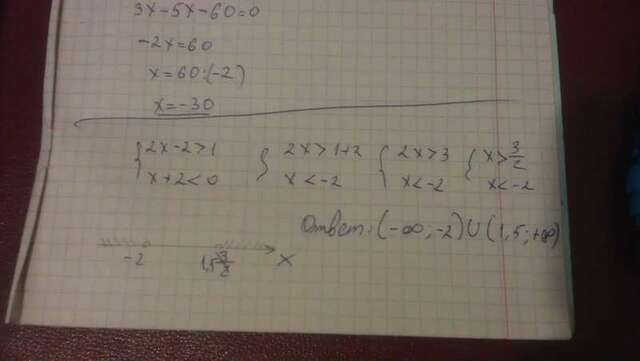 3x-5x-60=0
-2x=60
x=60:(-2)
x=-30
{2x-2>1 {2x>1+2 {2x>3 {x>3/2
{x+2<0 {x<-2 {x<-2 {x<-2
Ответ: (-∞;-2)∪(1,5;+∞)
-2 1,5 3/2 x